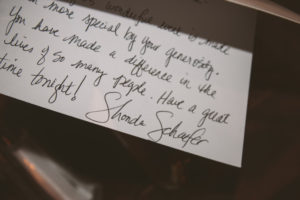 wonderful meal is made
more special by your generosity.
You have made a difference in the
lives of so many people. Have a great
time tonight!
Shonda Schaefer